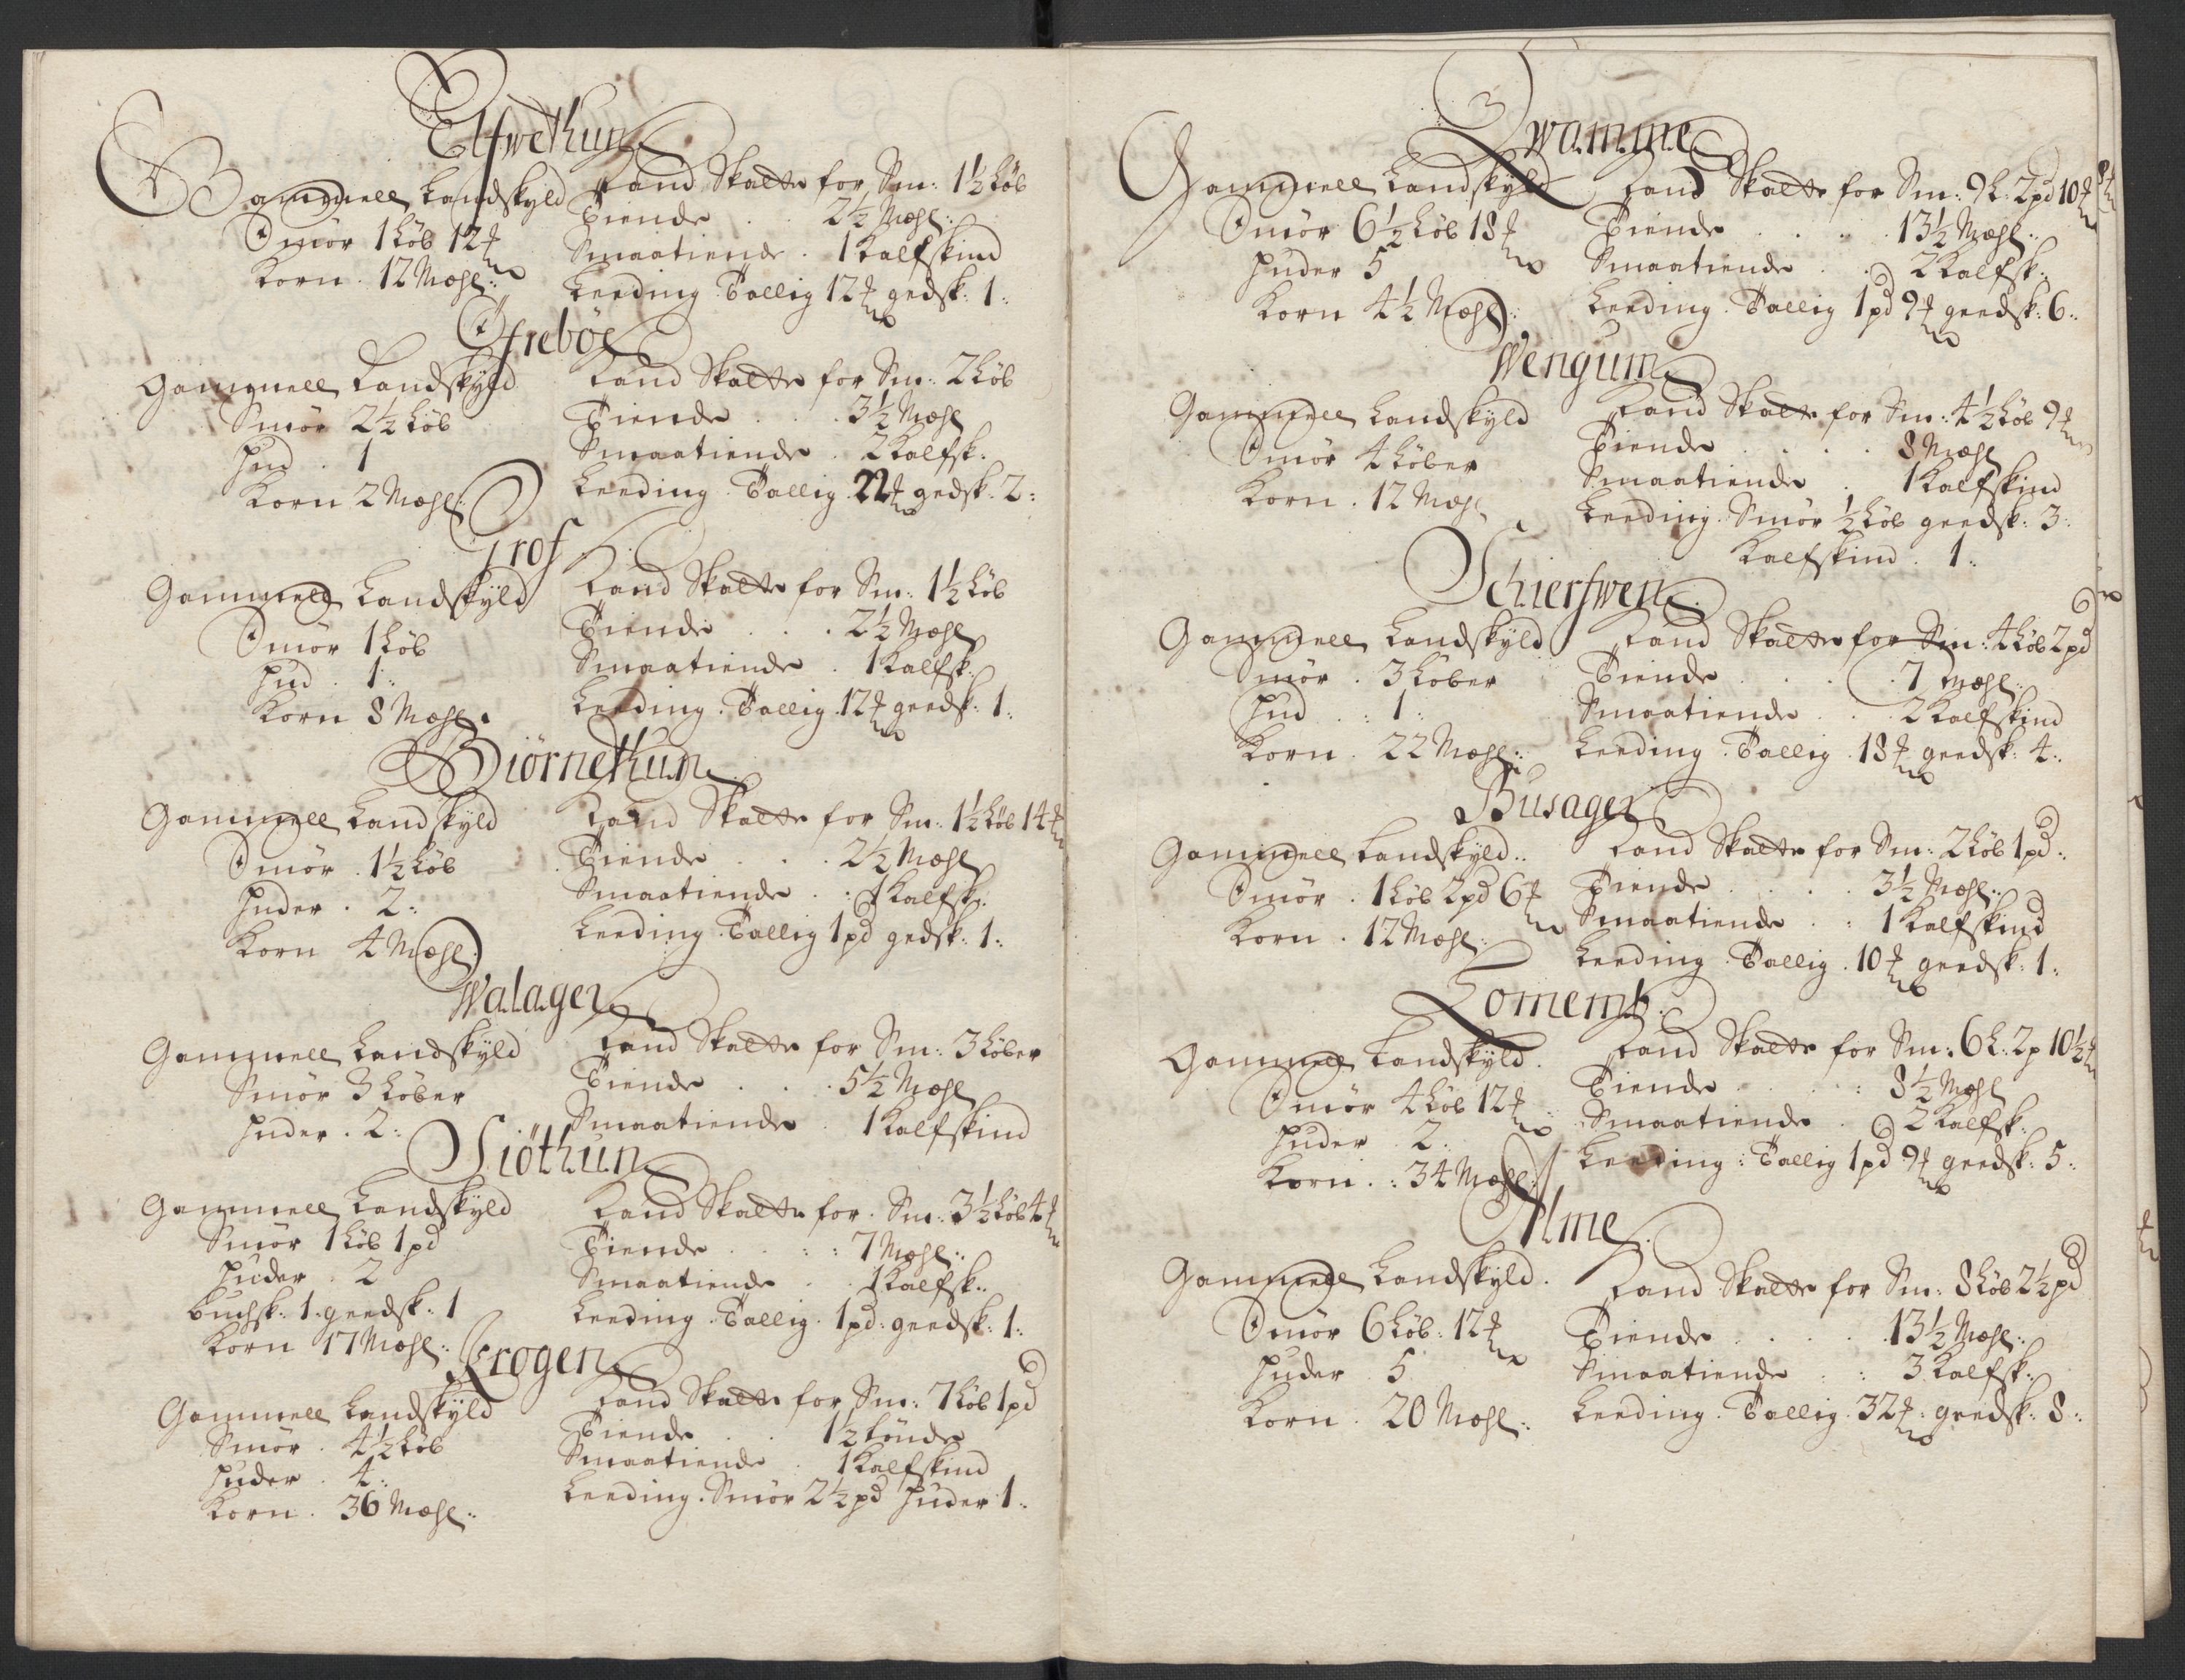 Elfwethun
Gammell Landskyld
Smör 1 Löb 12 ℔
Korn . 12 Mæhl:
Land Skatte for Sm: 1½ Löb
Tiende . . 2½ Mæhl:
Smaatiende . 1 Kalfskind
Leeding . Tallig 12 ℔ gedsk: 1:
Öfrebøe
Gammell Landskyld
Smör 2½ Löb
Hud . 1
Korn 2 Mæhl:
Land Skatte for Sm: 2 Löb
Tiende . . . 3½ Mæhl
Smaatiende . 2 Kalfsk:
Leeding . Tallig . 22 ℔ gedsk: 2:
Trof
Gammell Landskyld
Smör 1 Löb
Hud . 1:
Korn 8 Mæhl.
Land Skatte for Sm: 1½ Löb
Tiende . . . 2½ Mæhl
Smaatiende . 1 Kalfsk:
Leeding . Tallig . 12 ℔ geedsk: 1:
Biörnethun
Gammell Landskyld
Smör . 1½ Löb
Huder . 2:
Korn 4 Mæhl
Land Skatte for Sm: 1½ Löb 14 ℔
Tiende . . . 2½ Mæhl
Smaatiende . : 1 Kalfsk:
Leeding . Tallig 1 pd gedsk: 1:
Walager
Gammell Landskyld
Smör 3 Löber
Huder . 2:
Land Skatte for Sm: 3 Löber
Tiende . . . 5½ Mæhl
Smaatiende . 1 Kalfskind
Siöthun
Gammell Landskyld
Smör 1 Löb 1 pd
Huder . 2
Buchsk: 1 . geedsk: 1
Korn 17 Mæhl:
Land Skatte for . Sm: 3½ Löb 4 ℔
Tiende . . : : 7 Mæhl:
Smaatiende . . 1 Kalfsk:
Leeding . Tallig . 1 pd: geedsk: 1:
Krogen
Gammell Landskyld
Smör . 4½ Löb
Huder . 4:
Korn . 36 Mæhl:
Land Skatte for Sm: 7 Löb 1 pd
Tiende . . 1½ tönde
Smaatiende . 1 Kalfskind
Leeding . Smör 2½ pd Huder 1:
Qwamme
Gammell Landskyld
Smör 6½ Löb 18 ℔
Huder 5
Korn 4½ Mæhl:
Land Skatte for Sm: 9 L: 2 pd 10 ℔
Tiende . . . . 13½ Mæhl:
Smaatiende . . 2 Kalfsk:
Leeding . Tallig 1 pd 9 ℔ geedsk: 6:
Wengum
Gammell Landskyld
Smör 4 Löber
Korn . 12 Mæhl
Land Skatte for Sm: 4½ Löb 9 ℔
Tiende . . . . 8 Mæhl
Smaatiende . 1 Kalfskind
Leeding . Smör ½ Löb geedsk: 3:
Kalfskind . 1:
Schierfwen
Gammell Landskyld
Smör . 3 Löber
Hud . : 1:
Korn . 22 Mæhl:
Land Skatte for Sm: 4 Löb 2 pd
Tiende . . . . 7 Mæhl:
Smaatiende . . 2 Kalfskind
Leeding . Tallig . 18 ℔ geedsk: 4:
Busager
Gammell Landskyld:
Smör . 1 Löb 2 pd 6 ℔
Korn . 12 Mæhl:
Land Skatte for Sm: 2 Löb 1 pd:
Tiende . . . . 3½ Mæhl:
Smaatiende . : 1 Kalfskind
Leeding . Tallig . 10 ℔ geedsk: 1:
Gammell Landskyld.
Smör 4 Löb 12 ℔
Huder . 2:
Korn . : 34 Mæhl:
Land Skatte for Sm: 6 L: 2 p 10½ ℔
Tiende . . . : 8½ Mæhl
Smaatiende . . 2 Kalfsk:
Leeding : Tallig 1 pd 9 ℔ geedsk: 5:
Alme
Gammell Landskyld.
Smör 6 Löb: 12 ℔
Huder . 5
Korn . 20 Mæhl:
Land Skatte for Sm: 8 Löb 2½ pd
Tiende . . . . 13½ Mæhl:
Smaatiende . : 3 Kalfsk:
Leeding . Tallig . 32 ℔: geedsk: 8: